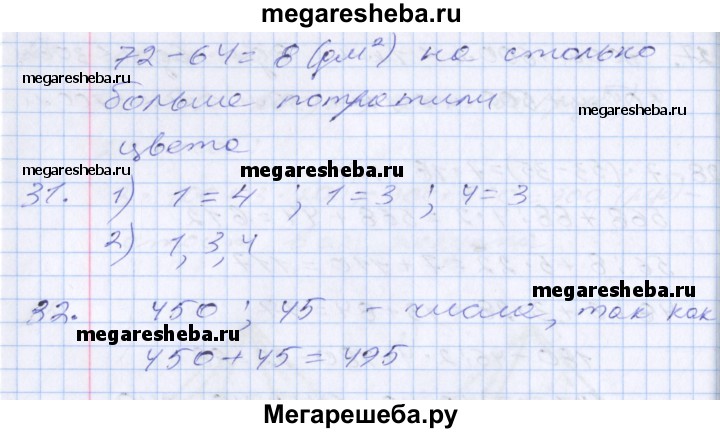 megaresheba.ru
72-64= 8 (дм²) на столько
megaresheba.ru
megaresheba.ru
больше потратили
цвета
megaresheba.ru
megaresheba.ru
31. 1) 1=4 ; 1=3 ; 4=3
2) 1, 3, 4
megaresheba.ru
32. 450 ; 45 - числа, так как
megaresheba.ru
450+45=495
Мегарешеба.ру